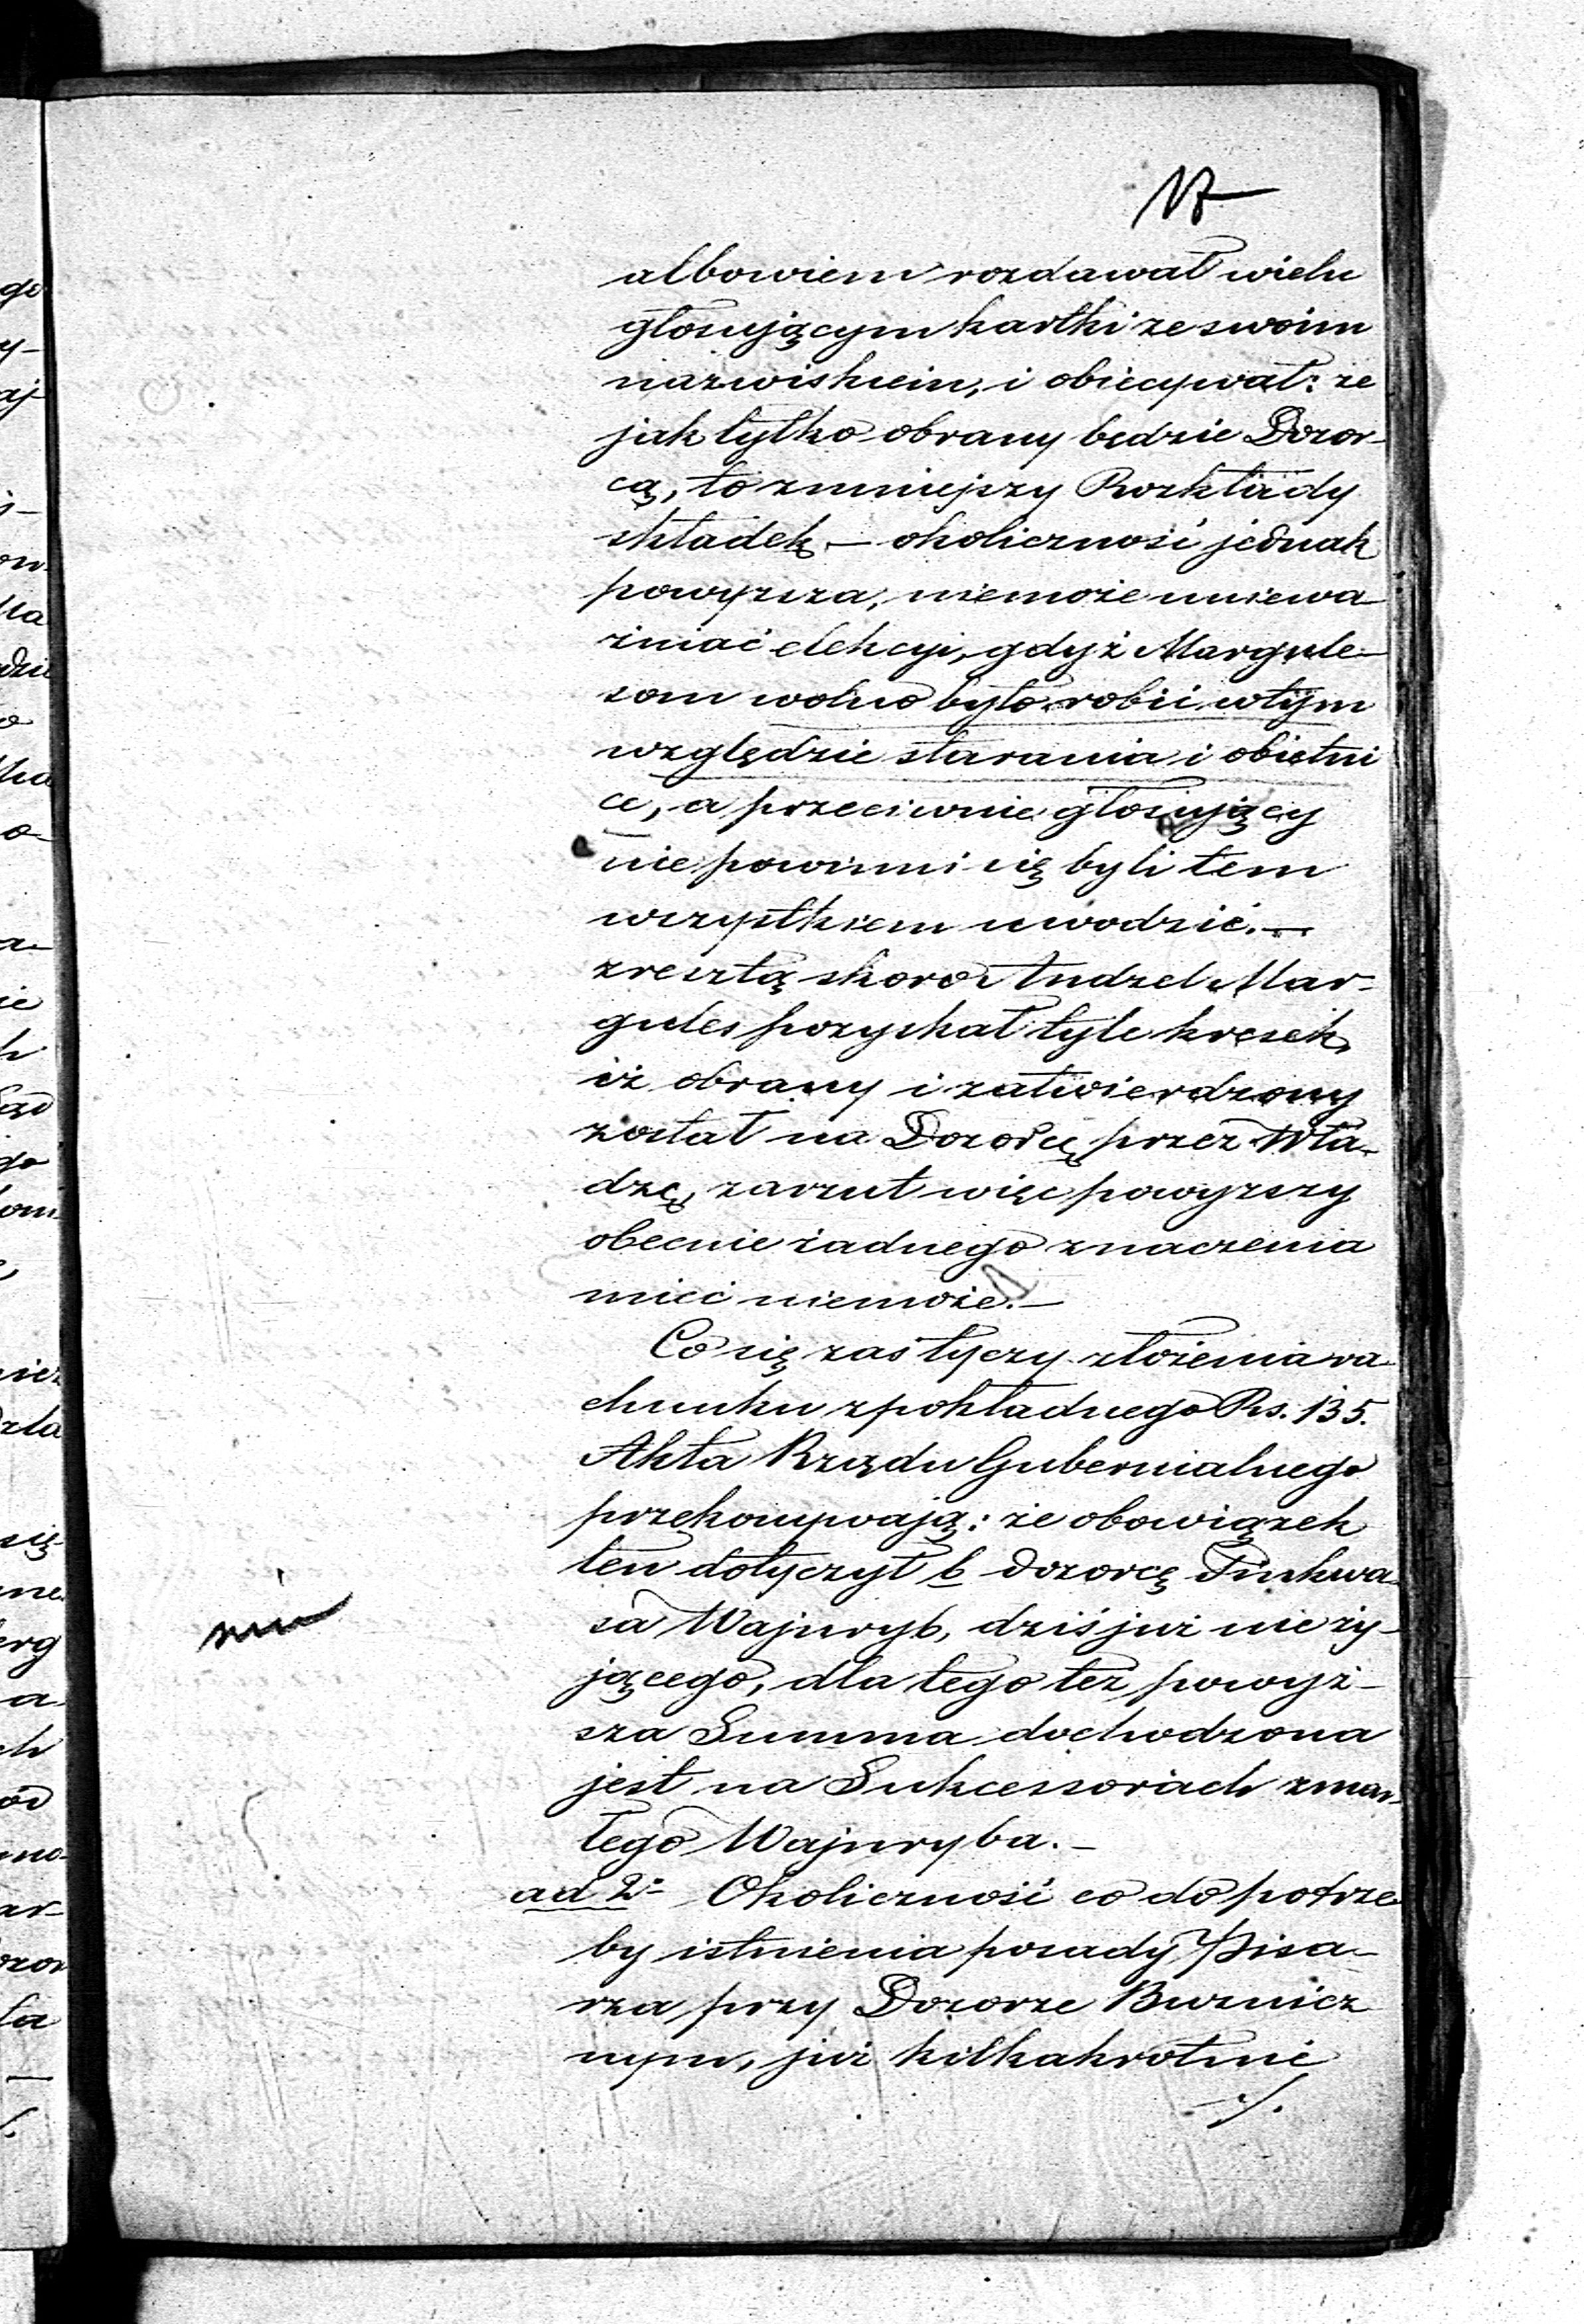 17
albowiem rozdawał wielu
głosującym kartki ze swoim
nazwiskiem, i obiecywał: że
jak tylko obrany będzie Dozor-
cą, to zmniejszy Rozkłady
składek, — okoliczność jednak
powyższa, niemoże uniewa-
żniać elekcyi, gdyż Margule-
som wolno było robić wtym
względzie starania i obietni
ce, a przeciwnie głosujący
nie powinni się byli tem
wszystkiem uwodzić. —
zresztą skoro Andzel Mar-
gules pozyskał tyle kresek,
iż obrany i zatwierdzony
został na Dozorcę przez Wła-
dzę, zarzut więc powyższy
obecnie żadnego znaczenia
mieć niemoże. —
Co się zaś tyczy złożenia ra-
chunku zpokładnego Rs. 135.
Akta Rządu Gubernialnego
przekonywają: że obowiązek
ten dotyczył b dozorcę Pinkwa-
sa Wajnryb, dziś już nie ży-
jącego, dla tego też, powyż-
sza Summa dochodzona
jest na Sukcessorach zmar-
łego Wajnryba. —
ad 2º Okoliczność co do potrze-
by istnienia posady Pisa-
rza przy Dozorze Bużnicz
nym, już kilkakrotnie
./.